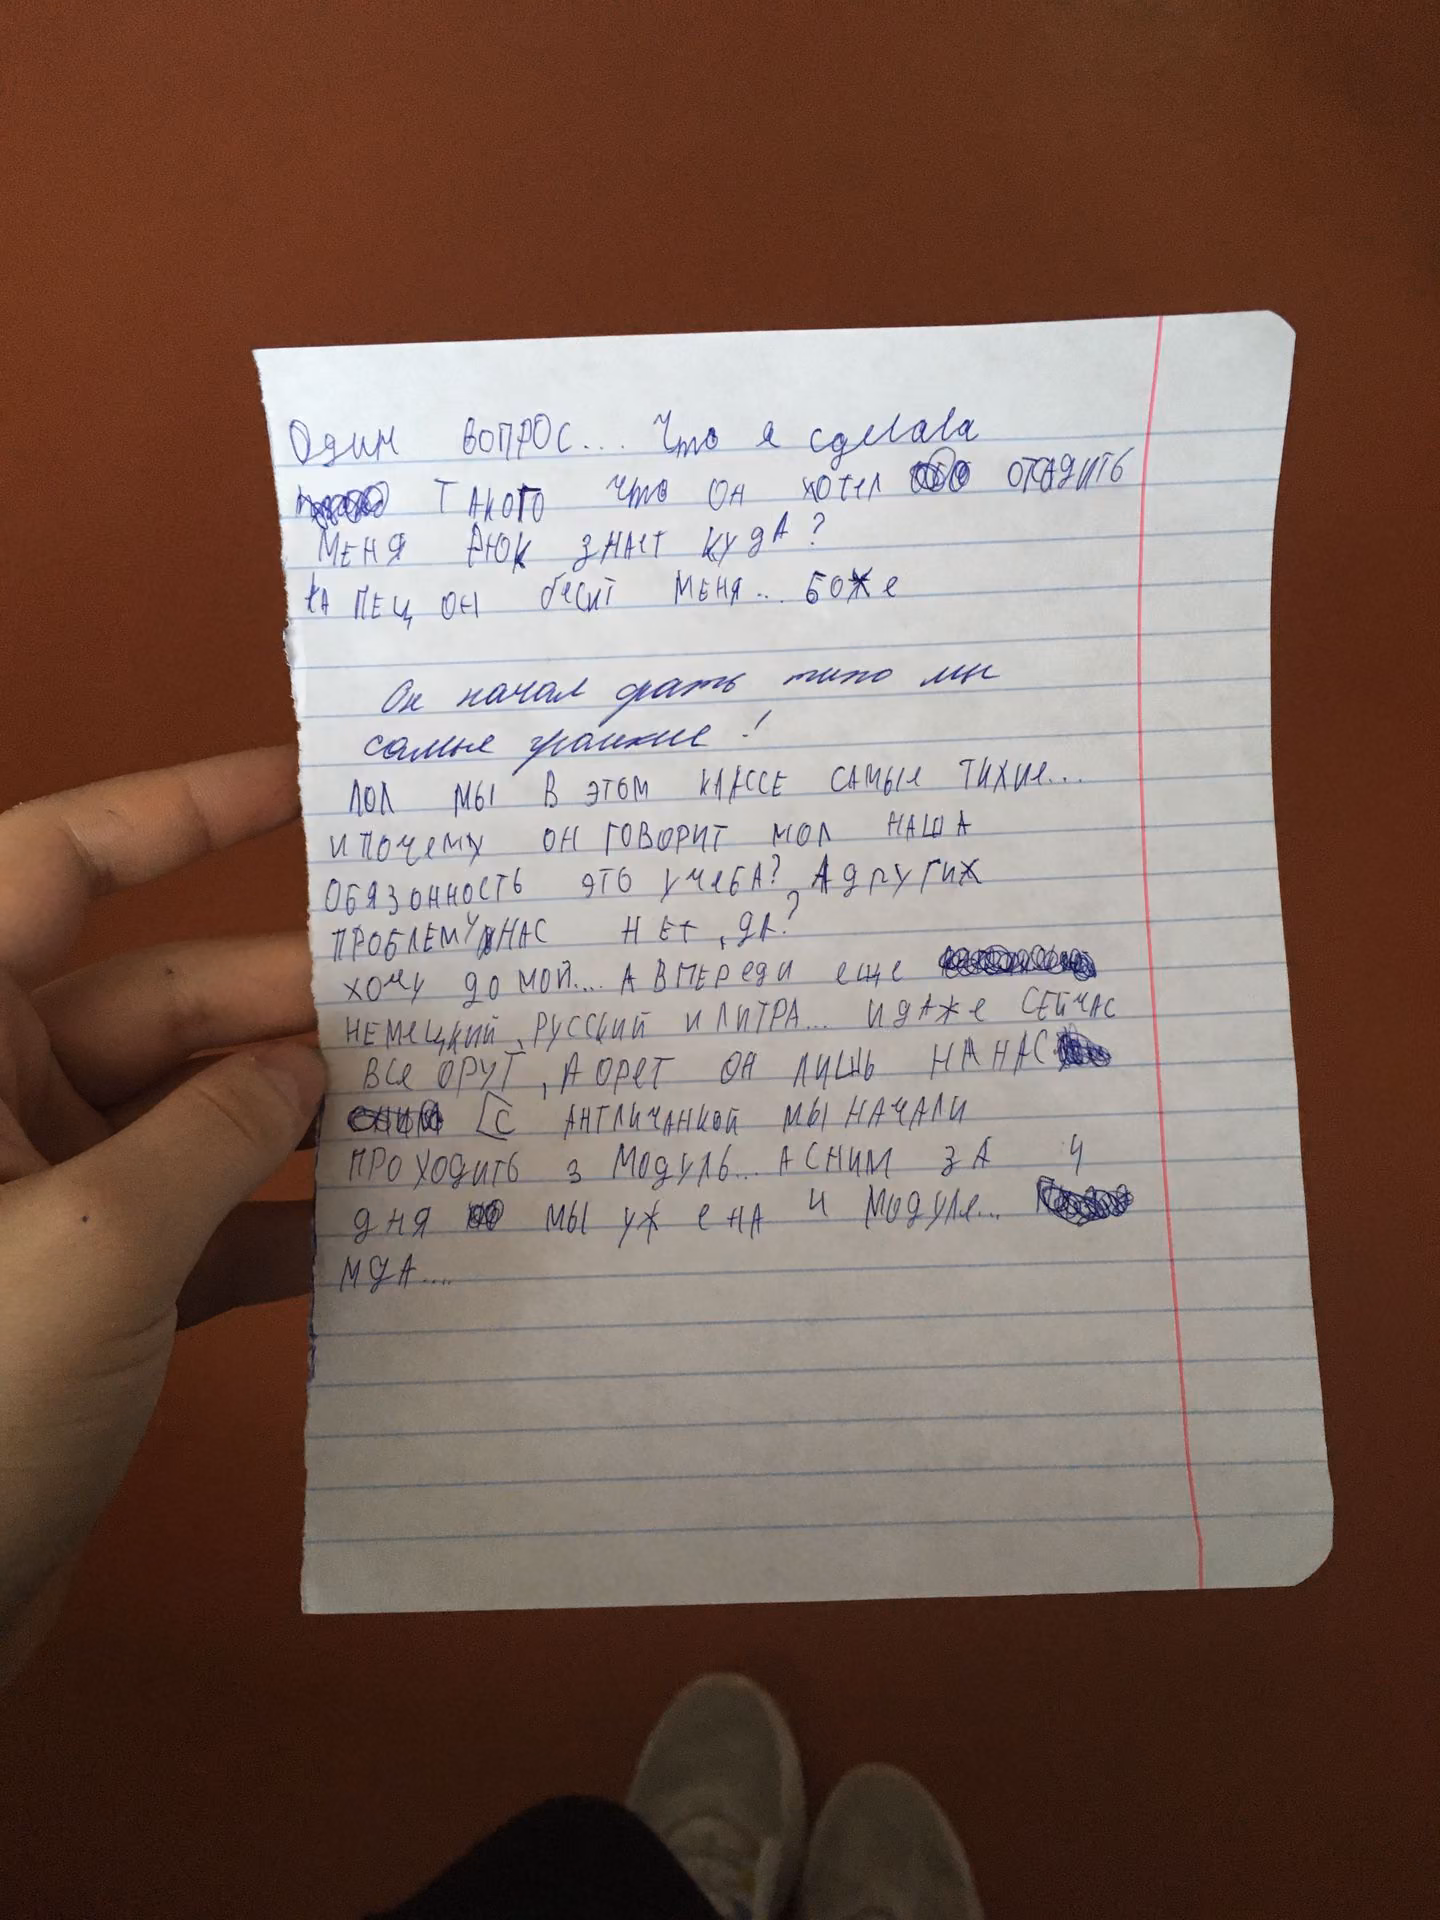 Один вопрос... Что я сделала
такого что он хотел отсадить
меня Рюк знает куда?
капец он бесит меня... боже
Он начал орать типо мы
самые громкие!
лол мы в этом классе самые тихие...
и почему он говорит мол наша
обязонность это учеба? А других
проблем у нас нет, да?
хочу домой.... А впереди еще
немецкий, русский и литра... и даже сейчас
все орут, а орет он лишь на нас
с англичанкой мы начали
проходить 3 модуль... а с ним за 4
дня мы уже на 4 модуле...
мда....